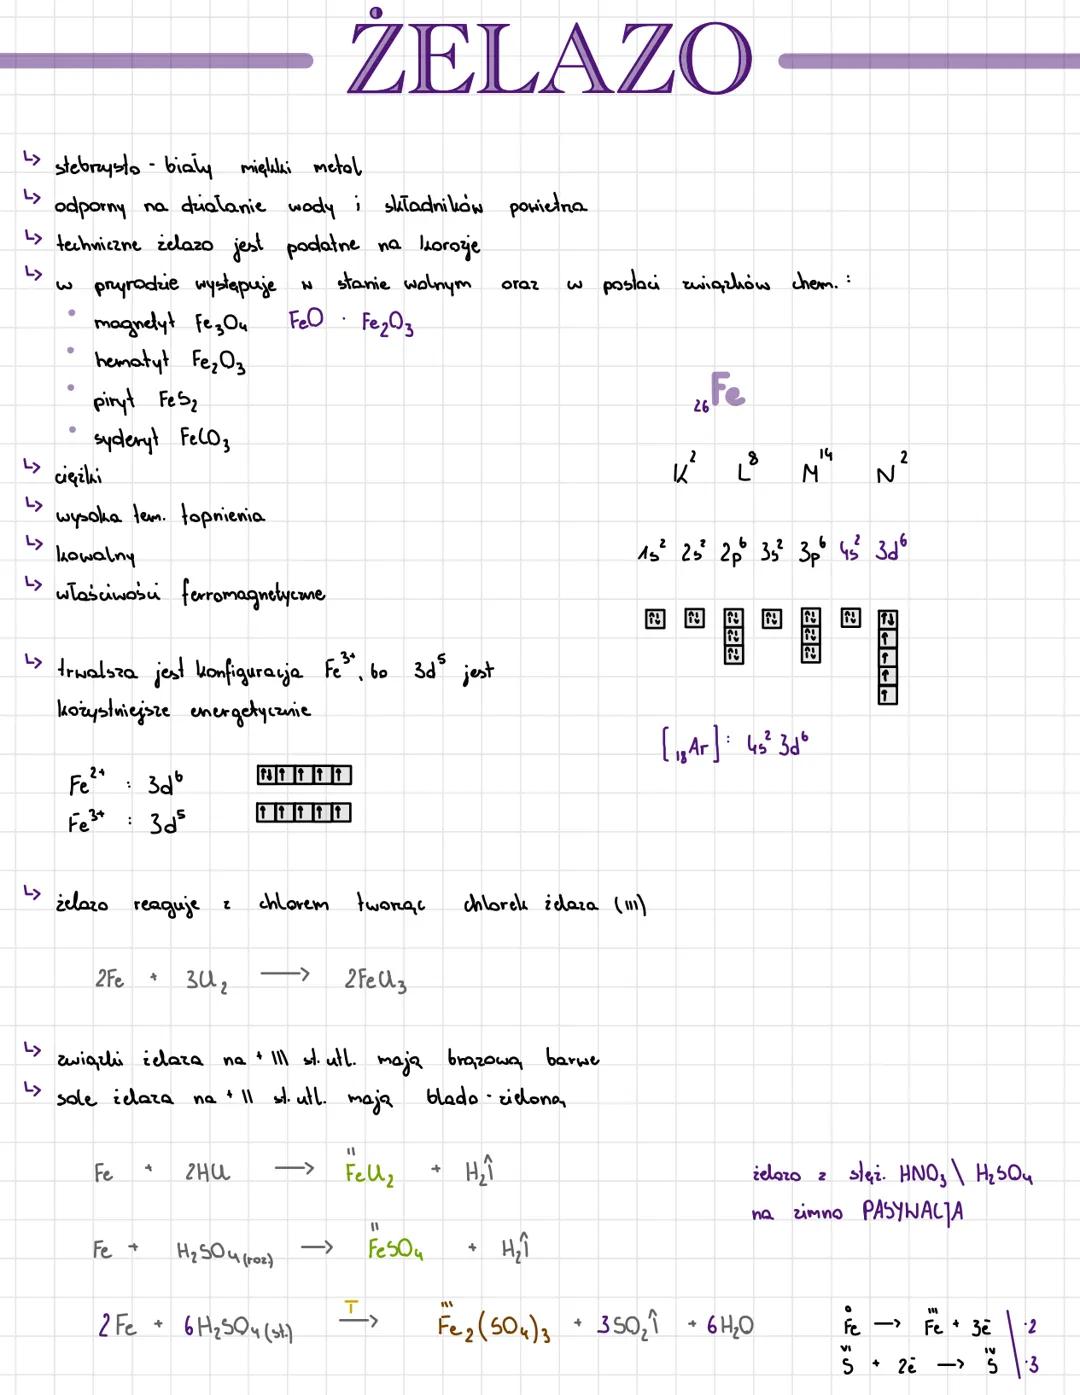 ŻELAZO
↳ srebrzysto - biały miękki metal
↳ odporny na działanie wody i składników powietrza
↳ techniczne żelazo jest podatne na korozje
↳ w przyrodzie występuje w stanie wolnym oraz w postaci związków chem. :
• magnetyt Fe₃O₄ FeO · Fe₂O₃
• hematyt Fe₂O₃
• piryt FeS₂
• syderyt FeCO₃
↳ ciężki
↳ wysoka tem. topnienia
↳ kowalny
↳ właściwości ferromagnetyczne
₂₆Fe
K² L⁸ M¹⁴ N²
1s² 2s² 2p⁶ 3s² 3p⁶ 4s² 3d⁶
[₁₈Ar]: 4s² 3d⁶
↳ trwalsza jest konfiguracja Fe³⁺, bo 3d⁵ jest
kożystniejsze energetycznie
Fe²⁺ : 3d⁶
Fe³⁺ : 3d⁵
↳ żelazo reaguje z chlorem tworząc chlorek żelaza (III)
2Fe + 3Cl₂ → 2FeCl₃
↳ związki żelaza na + III st. utl. mają brązową barwe
↳ sole żelaza na + II st. utl. mają blado - zieloną
Fe + 2HCl → ᴵᴵFeCl₂ + H₂↑
Fe + H₂SO₄(roz) → ᴵᴵFeSO₄ + H₂↑
2Fe + 6H₂SO₄(st.) T→ ᴵᴵᴵFe₂(SO₄)₃ + 3SO₂↑ + 6H₂O
żelazo z stęż. HNO₃ \ H₂SO₄
na zimno PASYWACJA
⁰Fe → ᴵᴵᴵFe + 3ē | ·2
ⱽᴵS + 2ē → ᴵⱽS | ·3